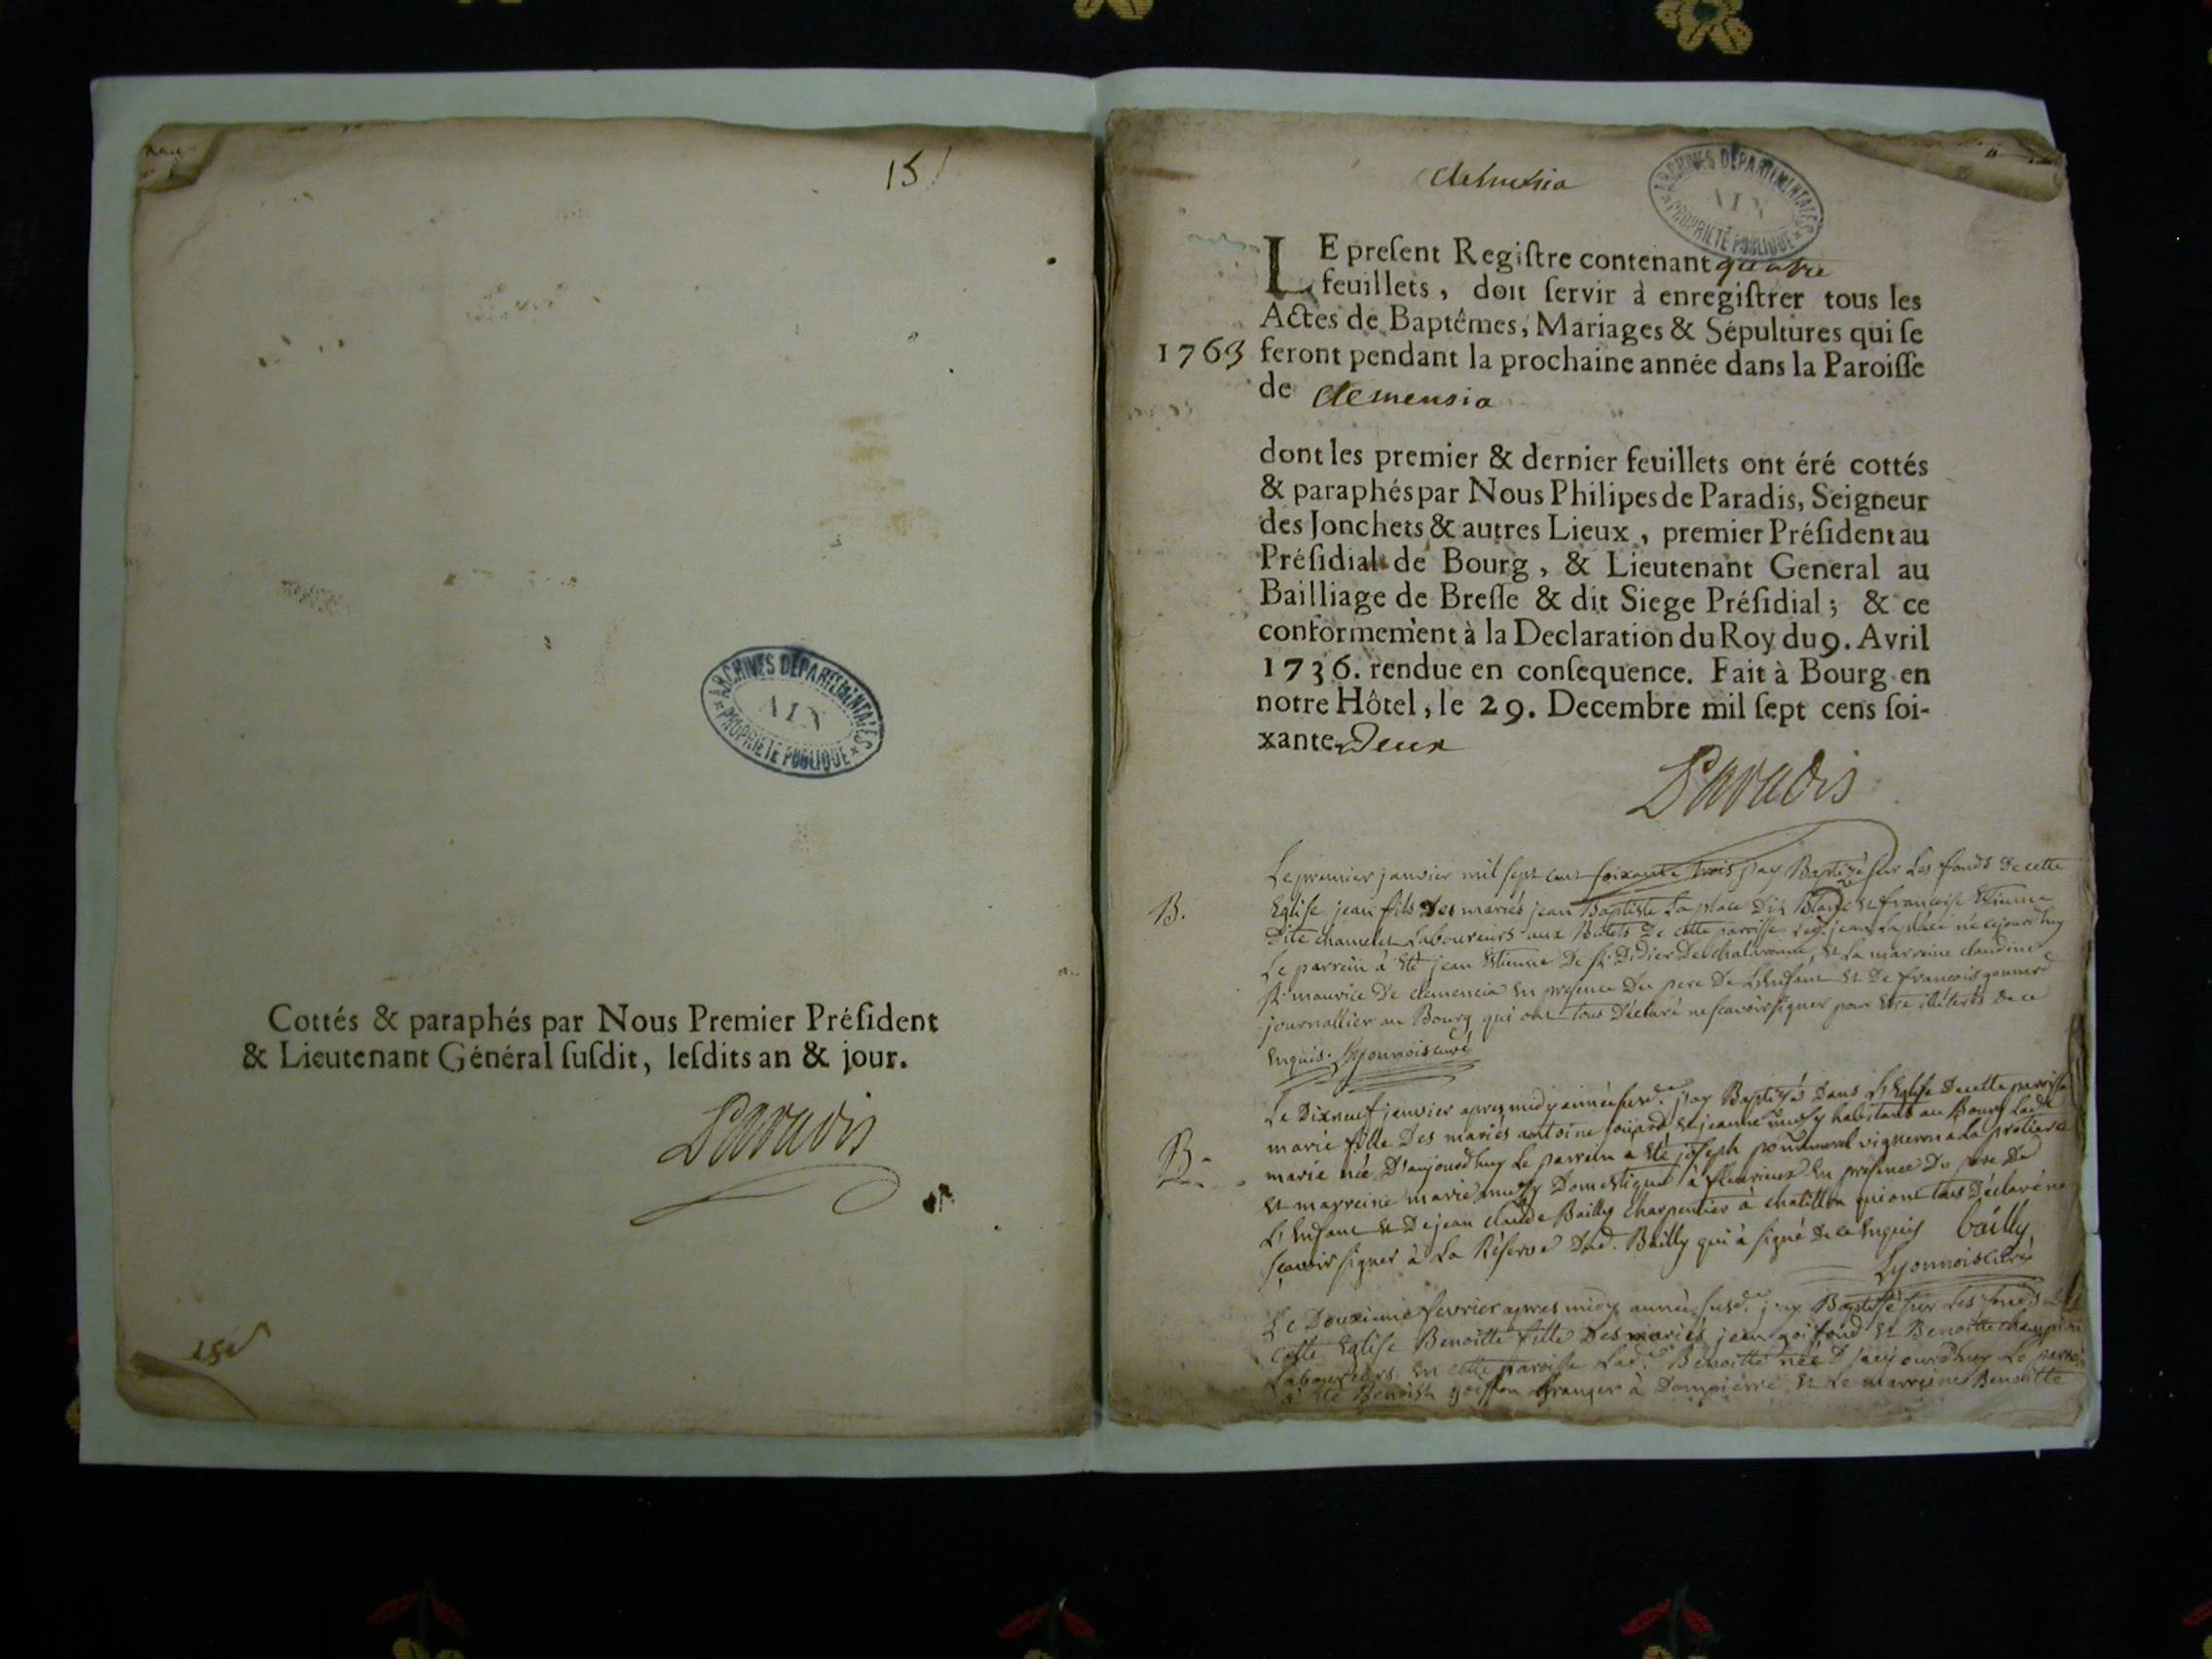 15
ARCHIVES DEPARTEMENTALES
AIN
PROPRIETE PUBLIQUE
Cottés & paraphés par Nous Premier Préſident
& Lieutenant Général ſuſdit, leſdits an & jour.
Paradis
ARCHIVES DEPARTEMENTALES
AIN
PROPRIETE PUBLIQUE
LE preſent Regiſtre contenant quatre
feuillets, doit ſervir à enregiſtrer tous les
Actes de Baptêmes, Mariages & Sépultures qui ſe
1763 feront pendant la prochaine année dans la Paroiſſe
de clemensia
dont les premier & dernier feuillets ont éré cottés
& paraphés par Nous Philipes de Paradis, Seigneur
des Jonchets & autres Lieux, premier Préſident au
Préſidial de Bourg, & Lieutenant General au
Bailliage de Breſſe & dit Siege Préſidial; & ce
conformement à la Declaration du Roy du 9. Avril
1736. rendue en conſequence. Fait à Bourg en
notre Hôtel, le 29. Decembre mil ſept cens ſoi-
xante Deux
Paradis
Le premier janvier mil sept cent soixante trois j'ay Baptizé sur Les fonds de cette
B. Eglise jean fils Des mariés jean Baptiste La place Dit Blanc et françoise Etienne
Dite chamelet Laboureurs aux de cette parroisse Led. jean La place né cejourd'huy
Le parrein à été jean Etienne De St Didier De chalaronne, et La marreine claudine
St maurice De clemencia en presence Du pere De L'Enfant et De francois gonnard
journallier au Bourg qui ont tous Déclaré ne scavoir signer pour etre illiterés de ce
enquis. Lyonnois curé
Le Dixneuf janvier apres midy année susd. j'ay Baptizé Dans L'Eglise De cette parroisse
marie fille Des mariés antoine et jeanne habitants au Bourg Lad.
B. marie née D'aujourdhuy Le parrein a été joseph vigneron a La
et marreine marie Domestique à fleurieux en presence Du pere De
L'Enfant et De jean claude Bailly charpentier à chatillon qui ont tous Déclaré ne
scavoir signer à La Réserve Dud. Bailly qui à signé de ce enquis bailly
Lyonnois curé
Le Douxieme fevrier apres midy année susd. j'ay Baptizé sur Les fonds
cette Eglise Benoitte fille Des mariés jean et Benoitte champion
Laboureurs en cette paroisse Lad. Benoitte née D'aujourdhuy Le parrein
à été Benoist goiffon Granger à Dompierre et Le marreine Benoitte